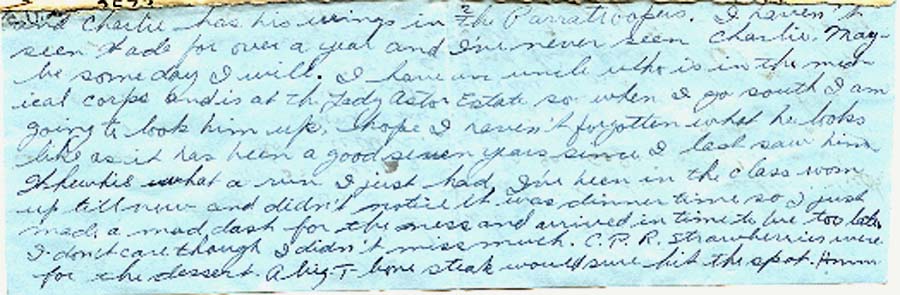 and Charlie has his wings in the Parratroopers. I haven't
seen Wade for over a year and I've never seen Charlie. May-
be someday I will. I have an uncle who is in the med-
ical corps and is at the Lady Astor Estate so when I go south I am
going to look him up. I hope I haven't forgotten what he looks
like as it has been a good seven years since I last saw him.
Whewhil what a run I just had, I've been in the class room
up till now and didn't notice it was dinner time so I just
made a mad dash for the mess and arrived in time to be too late.
I don't care though I didn't miss much. C.P.R. Strawberries were
for the dessert. A big T-bone steak would sure hit the spot. Hmm